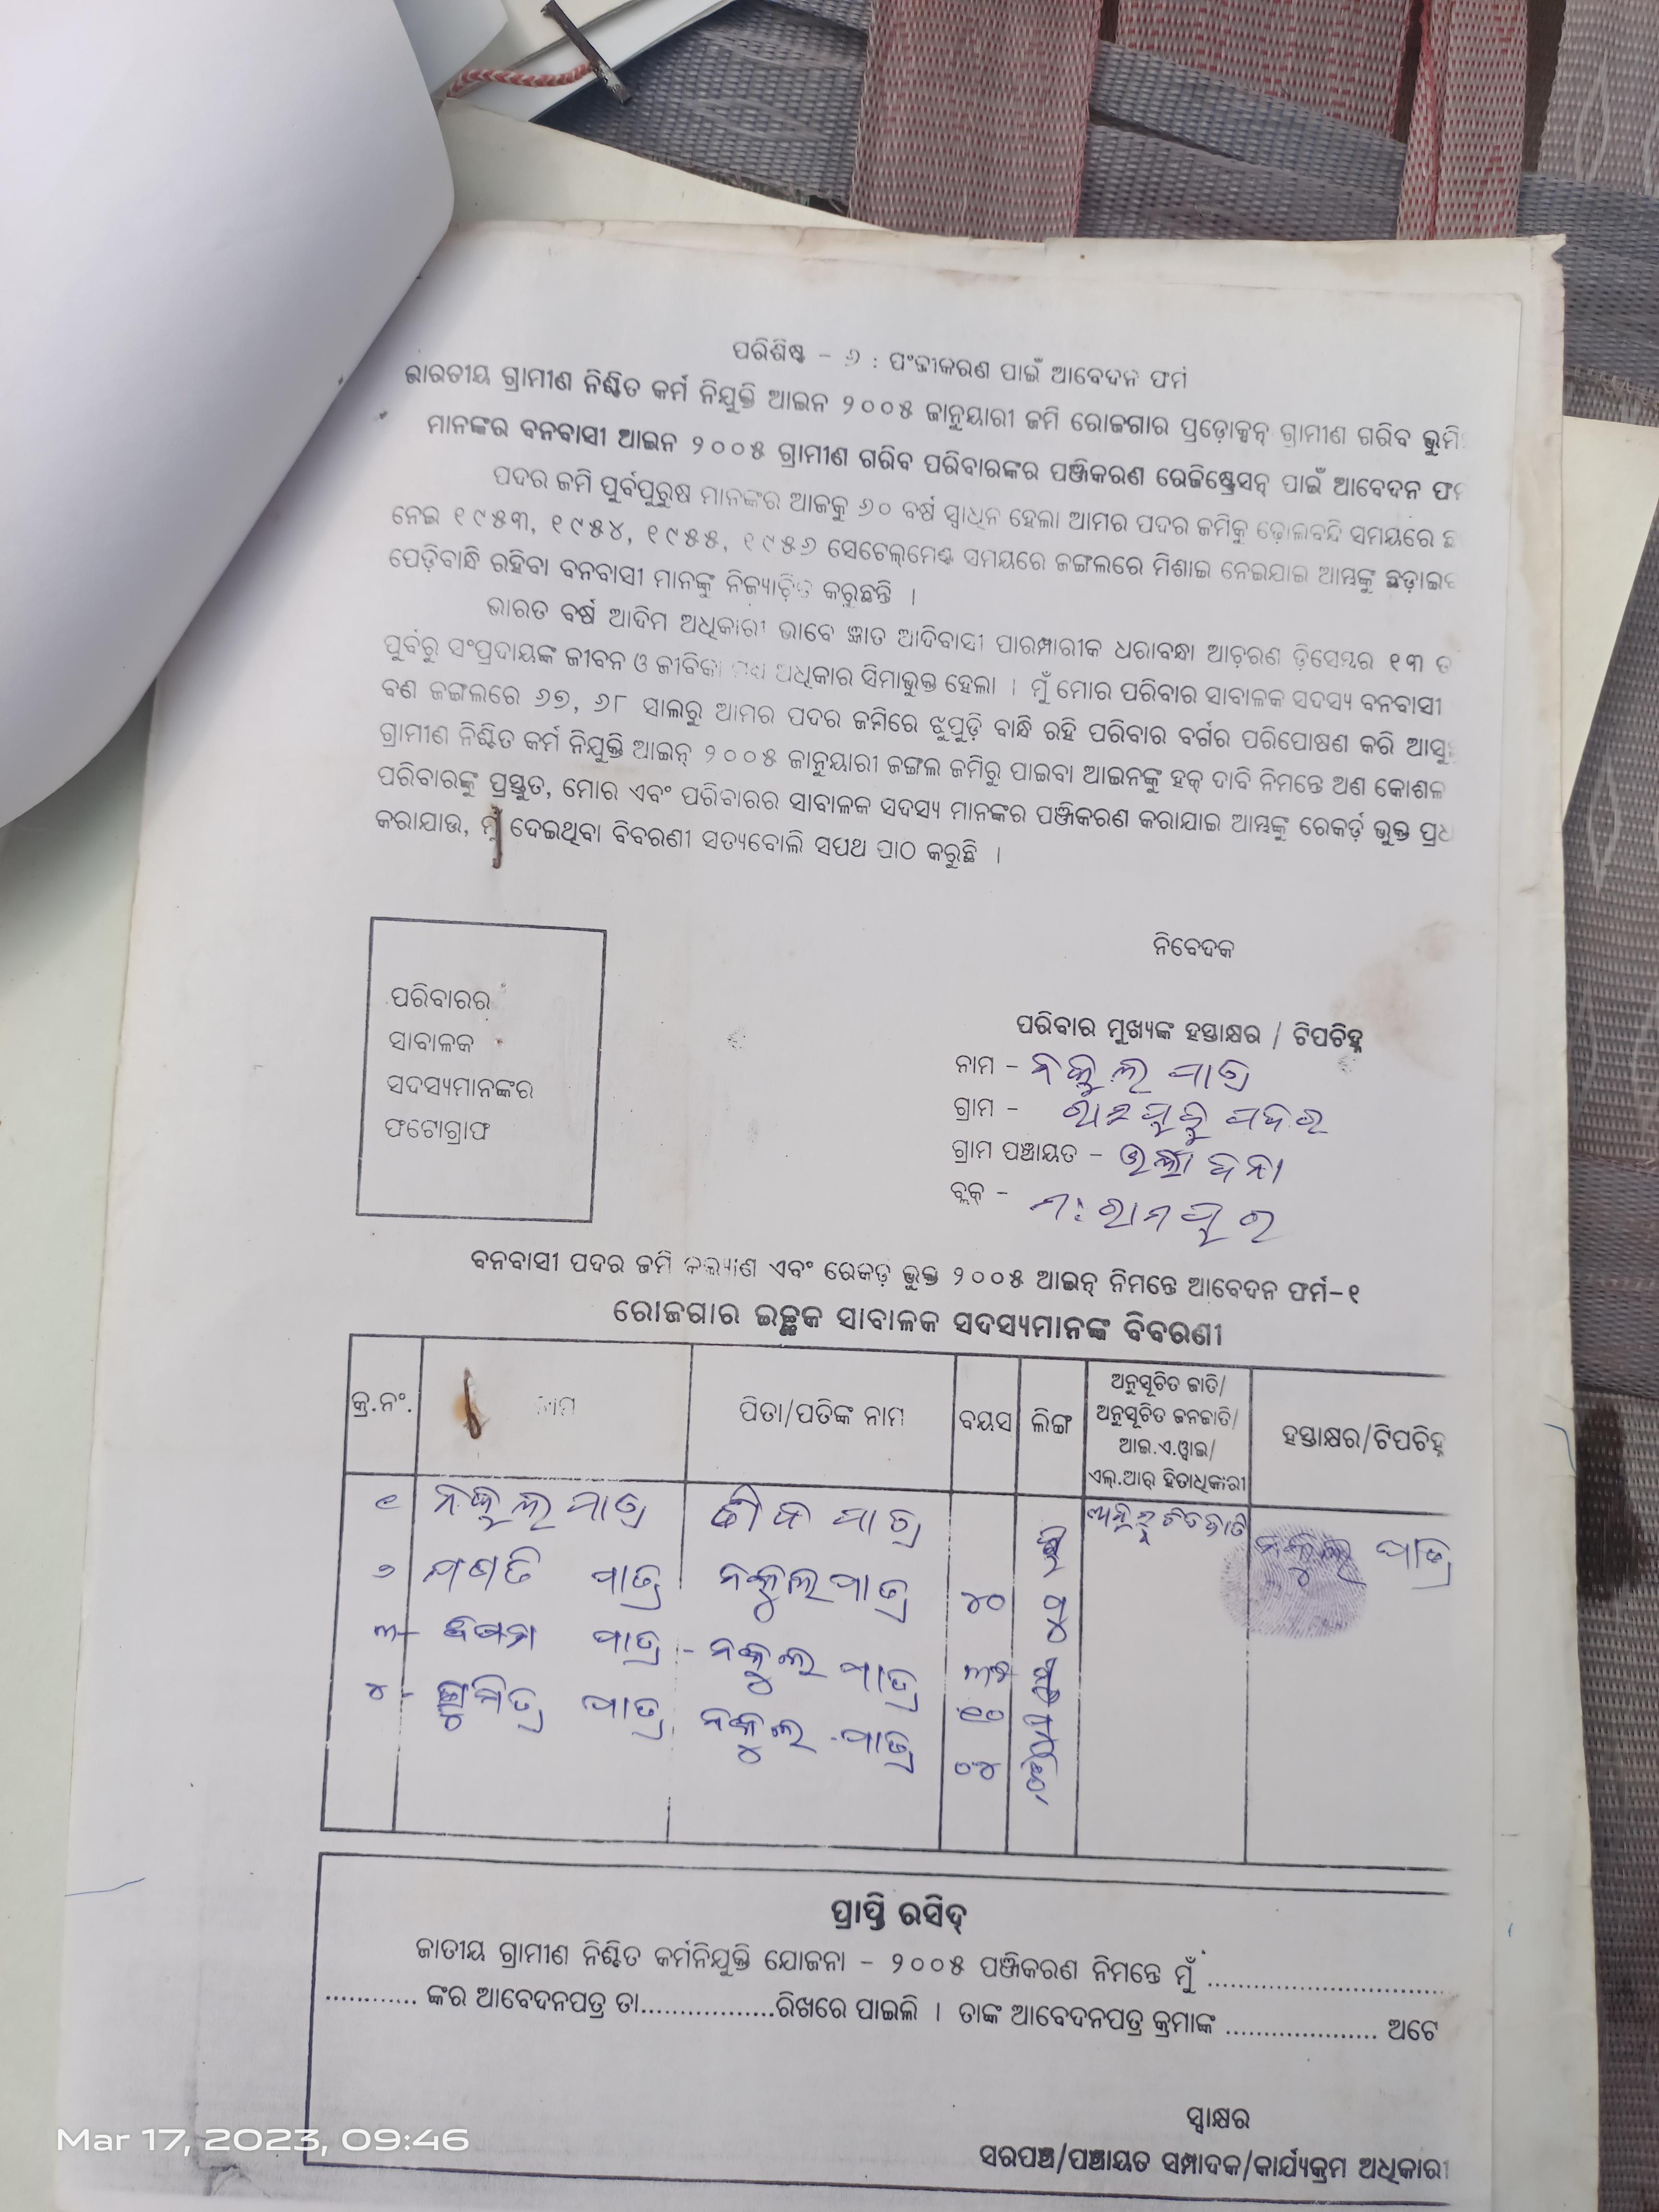 ପରିଶିଷ୍ଟ - ୬ : ପଂଜୀକରଣ ପାଇଁ ଆବେଦନ ଫର୍ମ
ଭାରତୀୟ ଗ୍ରାମୀଣ ନିଶ୍ଚିତ କର୍ମ ନିଯୁକ୍ତି ଆଇନ ୨୦୦୫ ଜାନୁୟାରୀ ଜମି ରୋଜଗାର ପ୍ରଡ଼ୋକ୍ସନ୍ ଗ୍ରାମୀଣ ଗରିବ
ମାନଙ୍କର ବନବାସୀ ଆଇନ ୨୦୦୫ ଗ୍ରାମୀଣ ଗରିବ ପରିବାରଙ୍କର ପଞ୍ଜିକରଣ ରେଜିଷ୍ଟ୍ରେସନ୍ ପାଇଁ ଆବେଦନ
ପଦର ଜମି ପୁର୍ବପୁରୁଷ ମାନଙ୍କର ଆଜକୁ ୬୦ ବର୍ଷ ସ୍ୱାଧିନ ହେଲା ଆମର ପଦର ଜମିକୁ ଢ଼ୋଲବନ୍ଦି ସମୟରେ
ନେଇ ୧୯୫୩, ୧୯୫୪, ୧୯୫୫, ୧୯୫୬ ସେଟେଲ୍‌ମେଣ୍ଟ ସମୟରେ ଜଙ୍ଗଲରେ ମିଶାଇ ନେଇଯାଇ ଆମ୍ଭଙ୍କୁ
ପେଡ଼ିବାନ୍ଧି ରହିବା ବନବାସୀ ମାନଙ୍କୁ କରୁଛନ୍ତି ।
ଭାରତ ବର୍ଷ ଆଦିମ ଅଧିକାରୀ ଭାବେ ଜ୍ଞାତ ଆଦିବାସୀ ପାରମ୍ପାରୀକ ଧରାବନ୍ଧା ଆଚ଼ରଣ ଡ଼ିସେମ୍ବର ୧୩
ପୁର୍ବରୁ ସଂପ୍ରଦାୟଙ୍କ ଜୀବନ ଓ ଜୀବିକା ଅଧିକାର ସିମାଭୁକ୍ତ ହେଲା । ମୁଁ ମୋର ପରିବାର ସାବାଳକ ସଦସ୍ୟ ବନବାସୀ
ବଣ ଜଙ୍ଗଲରେ ୬୭, ୬୮ ସାଲରୁ ଆମର ପଦର ଜମିରେ ଝୁପୁଡ଼ି ବାନ୍ଧି ରହି ପରିବାର ବର୍ଗର ପରିପୋଷଣ କରି
ଗ୍ରାମୀଣ ନିଶ୍ଚିତ କର୍ମ ନିଯୁକ୍ତି ଆଇନ୍ ୨୦୦୫ ଜାନୁୟାରୀ ଜଙ୍ଗଲ ଜମିରୁ ପାଇବା ଆଇନଙ୍କୁ ହକ୍ ଦାବି ନିମନ୍ତେ ଅଣ କୋଶଳ
ପରିବାରଙ୍କୁ ପ୍ରସ୍ତୁତ, ମୋର ଏବଂ ପରିବାରର ସାବାଳକ ସଦସ୍ୟ ମାନଙ୍କର ପଞ୍ଜିକରଣ କରାଯାଇ ଆମ୍ଭଙ୍କୁ ରେକର୍ଡ଼ ଭୁକ୍ତ
କରାଯାଉ, ମୁଁ ଦେଇଥିବା ବିବରଣୀ ସତ୍ୟବୋଲି ସପଥ ପାଠ କରୁଛି ।
ପରିବାରର
ସାବାଳକ
ସଦସ୍ୟମାନଙ୍କର
ଫଟୋଗ୍ରାଫ
ନିବେଦକ
ପରିବାର ମୁଖ୍ୟଙ୍କ ହସ୍ତାକ୍ଷର / ଟିପଚିହ୍ନ
ନାମ - ନକୁଲ ପାତ୍ର
ଗ୍ରାମ -
ଗ୍ରାମ ପଞ୍ଚାୟତ -
ବ୍ଲକ୍ -
ବନବାସୀ ପଦର ଜମି କଲ୍ୟାଣ ଏବଂ ରେକଡ଼ ଭୁକ୍ତ ୨୦୦୫ ଆଇନ୍ ନିମନ୍ତେ ଆବେଦନ ଫର୍ମ-୧
ରୋଜଗାର ଇଚ୍ଛୁକ ସାବାଳକ ସଦସ୍ୟମାନଙ୍କ ବିବରଣୀ
କ୍ର.ନଂ. ନାମ ପିତା/ପତିଙ୍କ ନାମ ବୟସ ଲିଙ୍ଗ ଅନୁସୂଚିତ ଜାତି/ ହସ୍ତାକ୍ଷର/ଟିପଚିହ୍ନ
ଅନୁସୂଚିତ ଜନଜାତି/
ଆଇ.ଏ.ୱାଇ/
ଏଲ୍.ଆର୍ ହିତାଧିକାରୀ
୧ ନକୁଲ ପାତ୍ର ପାତ୍ର ନକୁଲ ପାତ୍ର
୨ ପାତ୍ର ନକୁଲ ପାତ୍ର ୪୦
୩ ପାତ୍ର - ନକୁଲ ପାତ୍ର
୪ - ପାତ୍ର ନକୁଲ ପାତ୍ର
ପ୍ରାପ୍ତି ରସିଦ୍
ଜାତୀୟ ଗ୍ରାମୀଣ ନିଶ୍ଚିତ କର୍ମନିଯୁକ୍ତି ଯୋଜନା - ୨୦୦୫ ପଞ୍ଜିକରଣ ନିମନ୍ତେ ମୁଁ ..............................
............ ଙ୍କର ଆବେଦନପତ୍ର ତା.................ରିଖରେ ପାଇଲି । ତାଙ୍କ ଆବେଦନପତ୍ର କ୍ରମାଙ୍କ .................... ଅଟେ
ସ୍ୱାକ୍ଷର
ସରପଞ୍ଚ/ପଞ୍ଚାୟତ ସମ୍ପାଦକ/କାର୍ଯ୍ୟକ୍ରମ ଅଧିକାରୀ
Mar 17, 2023, 09:46